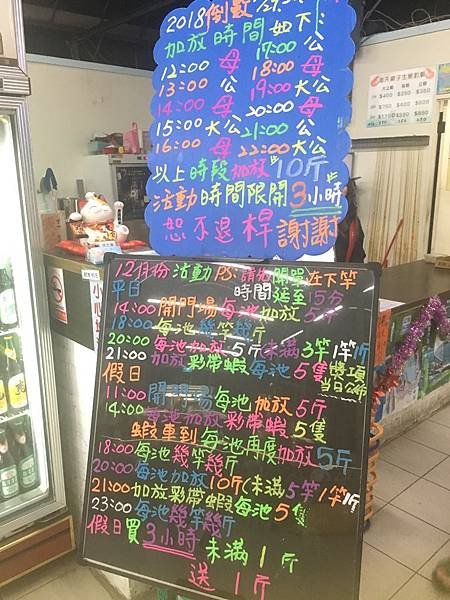 2018倒數
加放時間如下:
12:00 母 17:00 公
13:00 公 18:00 母
14:00 母 19:00 大公
15:00 大公 20:00 母
16:00 母 21:00 公
22:00 大公
以上時段加放10斤
活動時間限開3小時
恕不退桿 謝謝
12月份活動 PS:請先開單在下竿
平日 時間延至15分
14:00 開門場每池加放5斤
18:00 每池幾竿幾斤
20:00 每池加放5斤未滿3竿1竿1斤
21:00 加放彩帶蝦每池5隻 獎項當日公佈
假日
11:00 開門場每池加放5斤
14:00 每池加放彩帶蝦5隻
蝦車到每池再度加放5斤
18:00 每池幾竿幾斤
20:00 每池加放10斤(未滿5竿1竿1斤
21:00 加放彩帶蝦每池5隻
23:00 每池幾竿幾斤
假日買3小時未滿1斤
送1斤
小心地